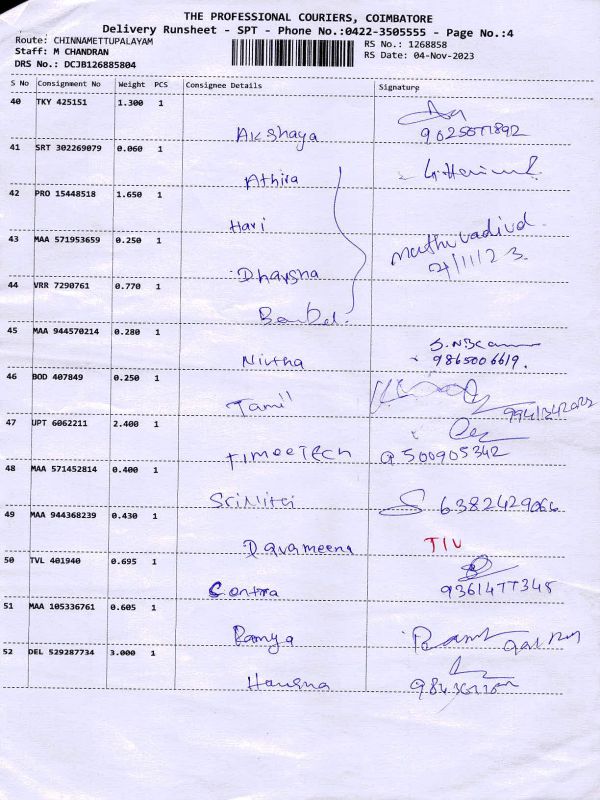 THE PROFESSIONAL COURIERS, COIMBATORE
Delivery Runsheet - SPT - Phone No.:0422-3505555 - Page No.:4
Route: CHINNAMETTUPALAYAM
RS No.: 1268858
Staff: M CHANDRAN
RS Date: 04-Nov-2023
DRS No.: DCJB126885804
S No Consignment No Weight PCS Consignee Details Signature
40 TKY 425151 1.300 1
Akshaya
41 SRT 302269079 0.060 1
Athira
42 PRO 15448518 1.650 1
Hari
43 MAA 571953659 0.250 1
Dharsha
44 VRR 7290761 0.770 1
45 MAA 944570214 0.280 1
Nivtha 9865006619.
46 BOD 407849 0.250 1
Tamil
47 UPT 6062211 2.400 1
timeeTech 9500905342
48 MAA 571452814 0.400 1
6382429066
49 MAA 944368239 0.430 1
Davameena
50 TVL 401940 0.695 1
Contra 9361477345
51 MAA 105336761 0.605 1
Ramya
52 DEL 529287734 3.000 1